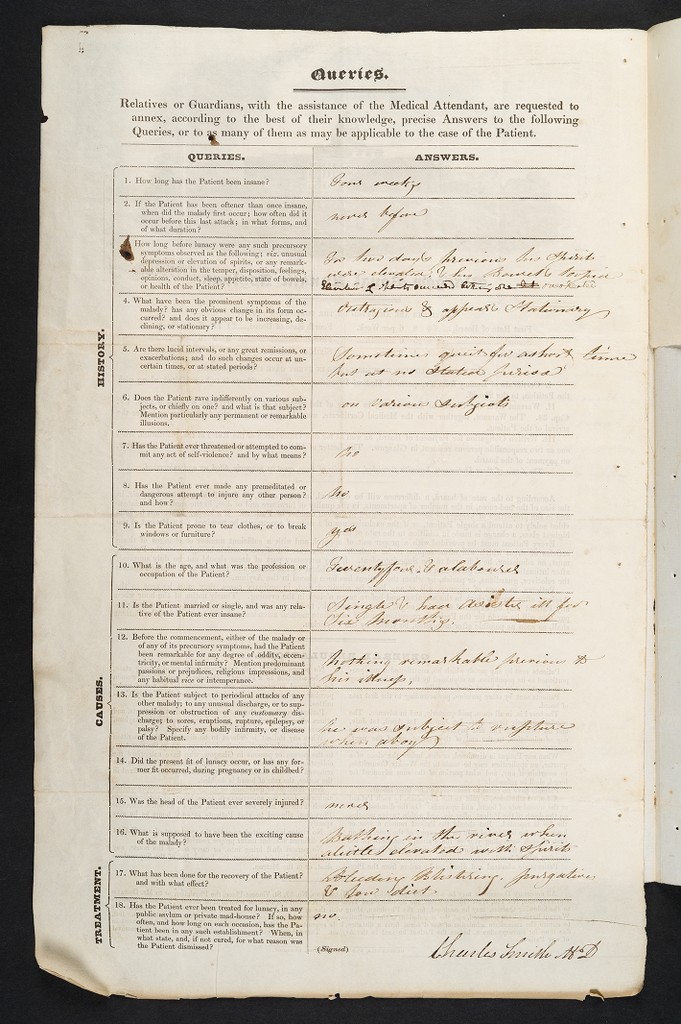 Queries.
Relatives or Guardians, with the assistance of the Medical Attendant, are requested to
annex, according to the best of their knowledge, precise Answers to the following
Queries, or to as many of them as may be applicable to the case of the Patient.
QUERIES.
ANSWERS.
HISTORY.
1. How long has the Patient been insane?
Four weeks
2. If the Patient has been oftener than once insane,
when did the malady first occur; how often did it
occur before this last attack; in what forms, and
of what duration?
never before
How long before lunacy were any such precursory
symptoms observed as the following; viz. unusual
depression or elevation of spirits, or any remark-
able alteration in the temper, disposition, feelings,
opinions, conduct, sleep, appetite, state of bowels,
or health of the Patient?
For two days previous his Spirits
were elevated & his Bowels torpid
4. What have been the prominent symptoms of the
malady? has any obvious change in its form oc-
curred? and does it appear to be increasing, de-
clining, or stationary?
Outragious & appears Stationary
5. Are there lucid intervals, or any great remissions, or
exacerbations; and do such changes occur at un-
certain times, or at stated periods?
Sometimes quiet for a short time
but at no Stated period
6. Does the Patient rave indifferently on various sub-
jects, or chiefly on one? and what is that subject?
Mention particularly any permanent or remarkable
illusions.
on various subjects
7. Has the Patient ever threatened or attempted to com-
mit any act of self-violence? and by what means?
no
8. Has the Patient ever made any premeditated or
dangerous attempt to injure any other person?
and how?
no
9. Is the Patient prone to tear clothes, or to break
windows or furniture?
yes
CAUSES.
10. What is the age, and what was the profession or
occupation of the Patient?
Twentyfour & a labourer
11. Is the Patient married or single, and was any rela-
tive of the Patient ever insane?
Single & had a sister ill for
Six Months.
12. Before the commencement, either of the malady or
of any of its precursory symptoms, had the Patient
been remarkable for any degree of oddity, eccen-
tricity, or mental infirmity? Mention predominant
passions or prejudices, religious impressions, and
any habitual vice or intemperance.
Nothing remarkable previous to
his illness,
13. Is the Patient subject to periodical attacks of any
other malady; to any unusual discharge, or to sup-
pression or obstruction of any customary dis-
charge; to sores, eruptions, rupture, epilepsy, or
palsy? Specify any bodily infirmity, or disease
of the Patient.
he was subject to rupture
when a boy
14. Did the present fit of lunacy occur, or has any for-
mer fit occurred, during pregnancy or in childbed?
15. Was the head of the Patient ever severely injured?
never
16. What is supposed to have been the exciting cause
of the malady?
Bathing in the river when
alittle elevated with Spirits
TREATMENT.
17. What has been done for the recovery of the Patient?
and with what effect?
Bleeding Blistering. purgatives
& low diet.
18. Has the Patient ever been treated for lunacy, in any
public asylum or private mad-house? If so, how
often, and how long on each occasion, has the Pa-
tient been in any such establishment? When, in
what state, and, if not cured, for what reason was
the Patient dismissed?
no.
(Signed)
Charles Smith MD